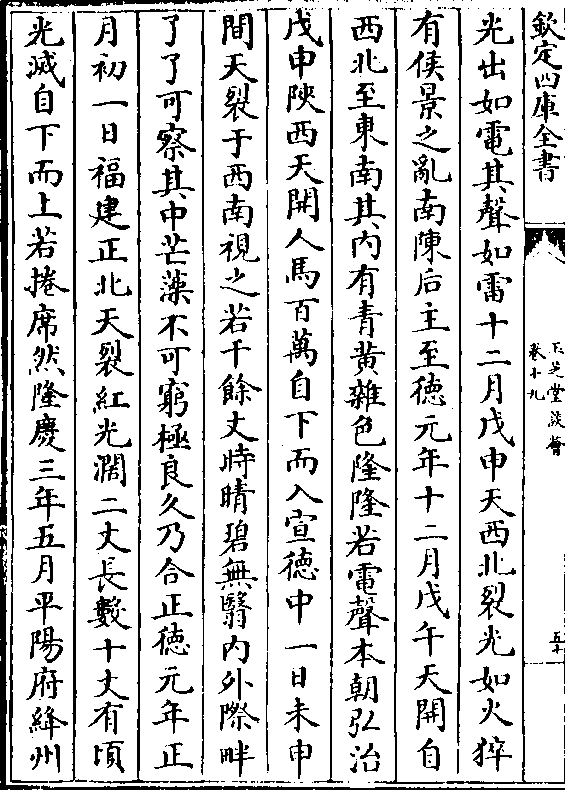 欽定四庫全書
玉芝堂談薈
卷十九
五十
光出如電其聲如雷十二月戊申天西北裂光如火猝
有侯景之亂南陳后主至徳元年十二月戊午天開自
西北至東南其内有青黄雜色隆隆若電聲本朝弘治
戊申陜西天開人馬百萬自下而入宣徳中一日未申
間天裂于西南視之若千餘丈時晴碧無翳内外際畔
了了可察其中茫藻不可窮極良久乃合正徳元年正
月初一日福建正北天裂紅光濶二丈長數十丈有頃
光滅自下而上若捲席然隆慶三年五月平陽府絳州